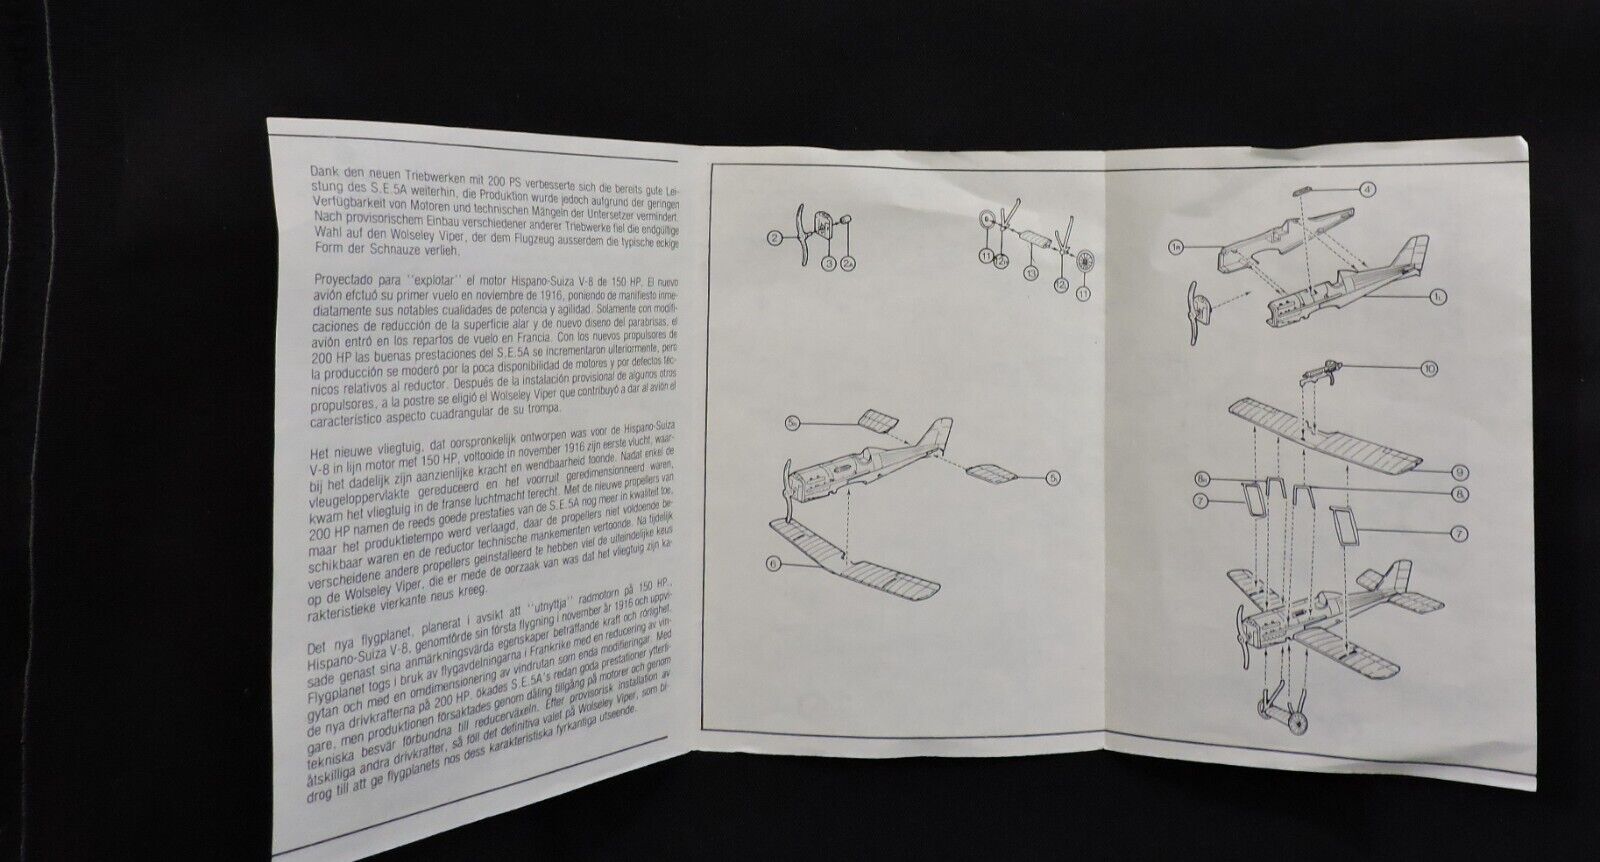 Dank den neuen Triebwerken mit 200 PS verbesserte sich die bereits gute Lei-
stung des S.E.5A weiterhin, die Produktion wurde jedoch aufgrund der geringen
Verfügbarkeit von Motoren und technischen Mängeln der Untersetzer vermindert.
Nach provisorischem Einbau verschiedener anderer Triebwerke fiel die endgültige
Wahl auf den Wolseley Viper, der dem Flugzeug ausserdem die typische eckige
Form der Schnauze verlieh.
Proyectado para "explotar" el motor Hispano-Suiza V-8 de 150 HP. El nuevo
avión efctuó su primer vuelo en noviembre de 1916, poniendo de manifiesto inme-
diatamente sus notables cualidades de potencia y agilidad. Solamente con modifi-
caciones de reducción de la superficie alar y de nuevo diseno del parabrisas, el
avión entró en los repartos de vuelo en Francia. Con los nuevos propulsores de
200 HP las buenas prestaciones del S.E.5A se incrementaron ulteriormente, pero
la producción se moderó por la poca disponibilidad de motores y por defectos téc-
nicos relativos al reductor. Después de la instalación provisional de algunos otros
propulsores, a la postre se eligió el Wolseley Viper que contribuyó a dar al avión el
característico aspecto cuadrangular de su trompa.
Het nieuwe vliegtuig, dat oorspronkelijk ontworpen was voor de Hispano-Suiza
V-8 in lijn motor met 150 HP, voltooide in november 1916 zijn eerste vlucht, waar-
bij het dadelijk zijn aanzienlijke kracht en wendbaarheid toonde. Nadat enkel de
vleugeloppervlakte gereduceerd en het voorruit geredimensionneerd waren,
kwam het vliegtuig in de franse luchtmacht terecht. Met de nieuwe propellers van
200 HP namen de reeds goede prestaties van de S.E.5A nog meer in kwaliteit toe,
maar het produktietempo werd verlaagd, daar de propellers niet voldoende be-
schikbaar waren en de reductor technische mankementen vertoonde. Na tijdelijk
verscheidene andere propellers geinstalleerd te hebben viel de uiteindelijke keus
op de Wolseley Viper, die er mede de oorzaak van was dat het vliegtuig zijn ka-
rakteristieke vierkante neus kreeg.
Det nya flygplanet, planerat i avsikt att "utnyttja" radmotorn på 150 HP.,
Hispano-Suiza V-8, genomförde sin första flygning i november år 1916 och uppvi-
sade genast sina anmärkningsvärda egenskaper beträffande kraft och rörlighet.
Flygplanet togs i bruk av flygavdelningarna i Frankrike med en reducering av vin-
gytan och med en omdimensionering av vindrutan som enda modifieringar. Med
de nya drivkrafterna på 200 HP. ökades S.E.5A's redan goda prestationer ytterli-
gare, men produktionen försaktades genom dåling tillgång på motorer och genom
tekniska besvär förbundna till reducerväxeln. Efter provisorisk installation av
åtskilliga andra drivkrafter, så föll det definitiva valet på Wolseley Viper, som bi-
drog till att ge flygplanets nos dess karakteristiska fyrkantiga utseende.
2
3
2A
11
12
13
12
11
5
5
6
4
1
1
10
9
8
8
7
7